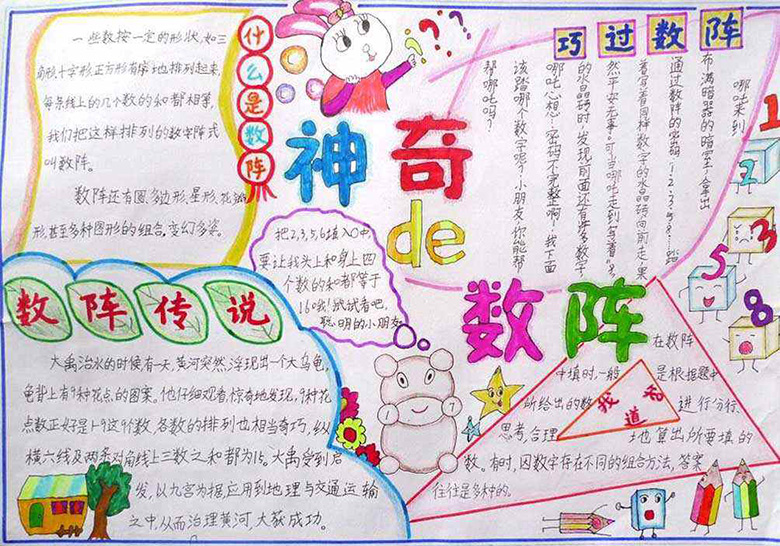 什么是数阵
一些数按一定的形状,如三
角形十字形,正方形有序地排列起来,
每条线上的几个数的和都相等,
我们把这样排列的数字阵式
叫数阵。
数阵还有圆、多边形、星形、花瓣
形,甚至多种图形的组合,变幻多姿。
神奇
de
数阵
巧过数阵
哪吒来到
布满暗器的暗室,拿出
通过数阵的密码:1-2-3-5-8-…踏
着写着同样数字的水晶砖向前走,果
然平安无事,可当哪吒走到写着"8"
的水晶砖时,发现前面还有许多数字,
哪吒心想:"密码不完整啊!我下面
该踏哪个数字呢?"小朋友,你能帮
帮哪吒吗?
1
2
3
5
8
把2,3,5,6填入○中,
要让我头上和身上四
个数的和都等于
16哦!试试看吧,
聪明的小朋友
数阵传说
大禹治水的时候有一天,黄河突然浮现出一个大乌龟,
龟背上有9种花点的图案。他仔细观看,惊奇地发现,9种花
点数正好是1-9这9个数。各数的排列也相当奇巧,纵
横六线及两条对角线上三数之和都为15。大禹受到启
发,以九宫为据,应用到地理与交通运输
之中,从而治理黄河,大获成功。
我知道
在数阵
中填时,一般是根据题中
所给出的数进行分析、
思考,合理地算出所要填的
数。有时,因数字存在不同的组合方法,答案
往往是多种的。